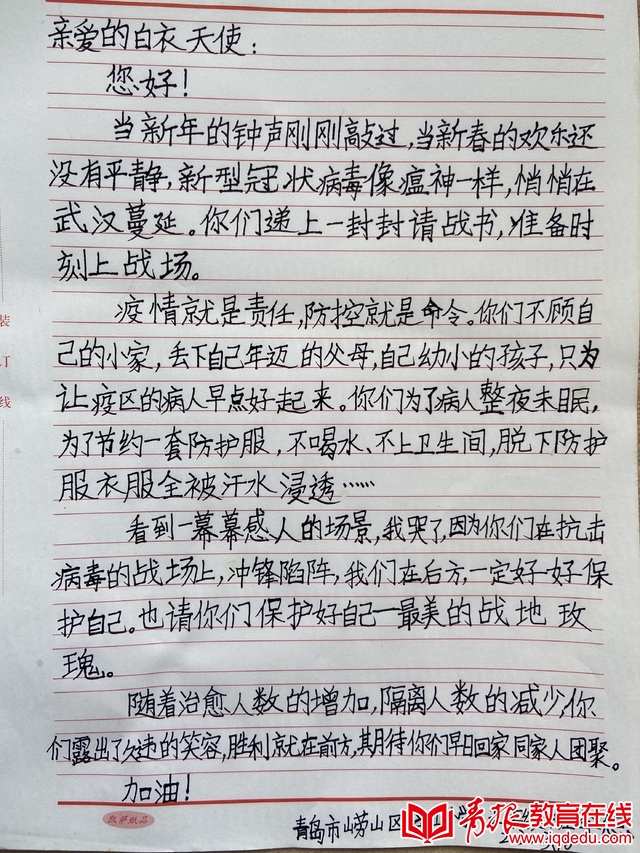 亲爱的白衣天使:
您好!
当新年的钟声刚刚敲过,当新春的欢乐还
没有平静,新型冠状病毒像瘟神一样,悄悄在
武汉蔓延。你们递上一封封请战书,准备时
刻上战场。
疫情就是责任,防控就是命令。你们不顾自
己的小家,丢下自己年迈的父母,自己幼小的孩子,只为
让疫区的病人早点好起来。你们为了病人整夜未眠,
为了节约一套防护服,不喝水、不上卫生间,脱下防护
服衣服全被汗水浸透……
看到一幕幕感人的场景,我哭了,因为你们在抗击
病毒的战场上,冲锋陷阵,我们在后方,一定好好保
护自己。也请你们保护好自己—最美的战地玫
瑰。
随着治愈人数的增加,隔离人数的减少,你
们露出了久违的笑容,胜利就在前方,期待你们早日回家同家人团聚。
加油!
青岛市崂山区
装
订
线
凯萨纸品
青报教育在线
www.qdedu.com